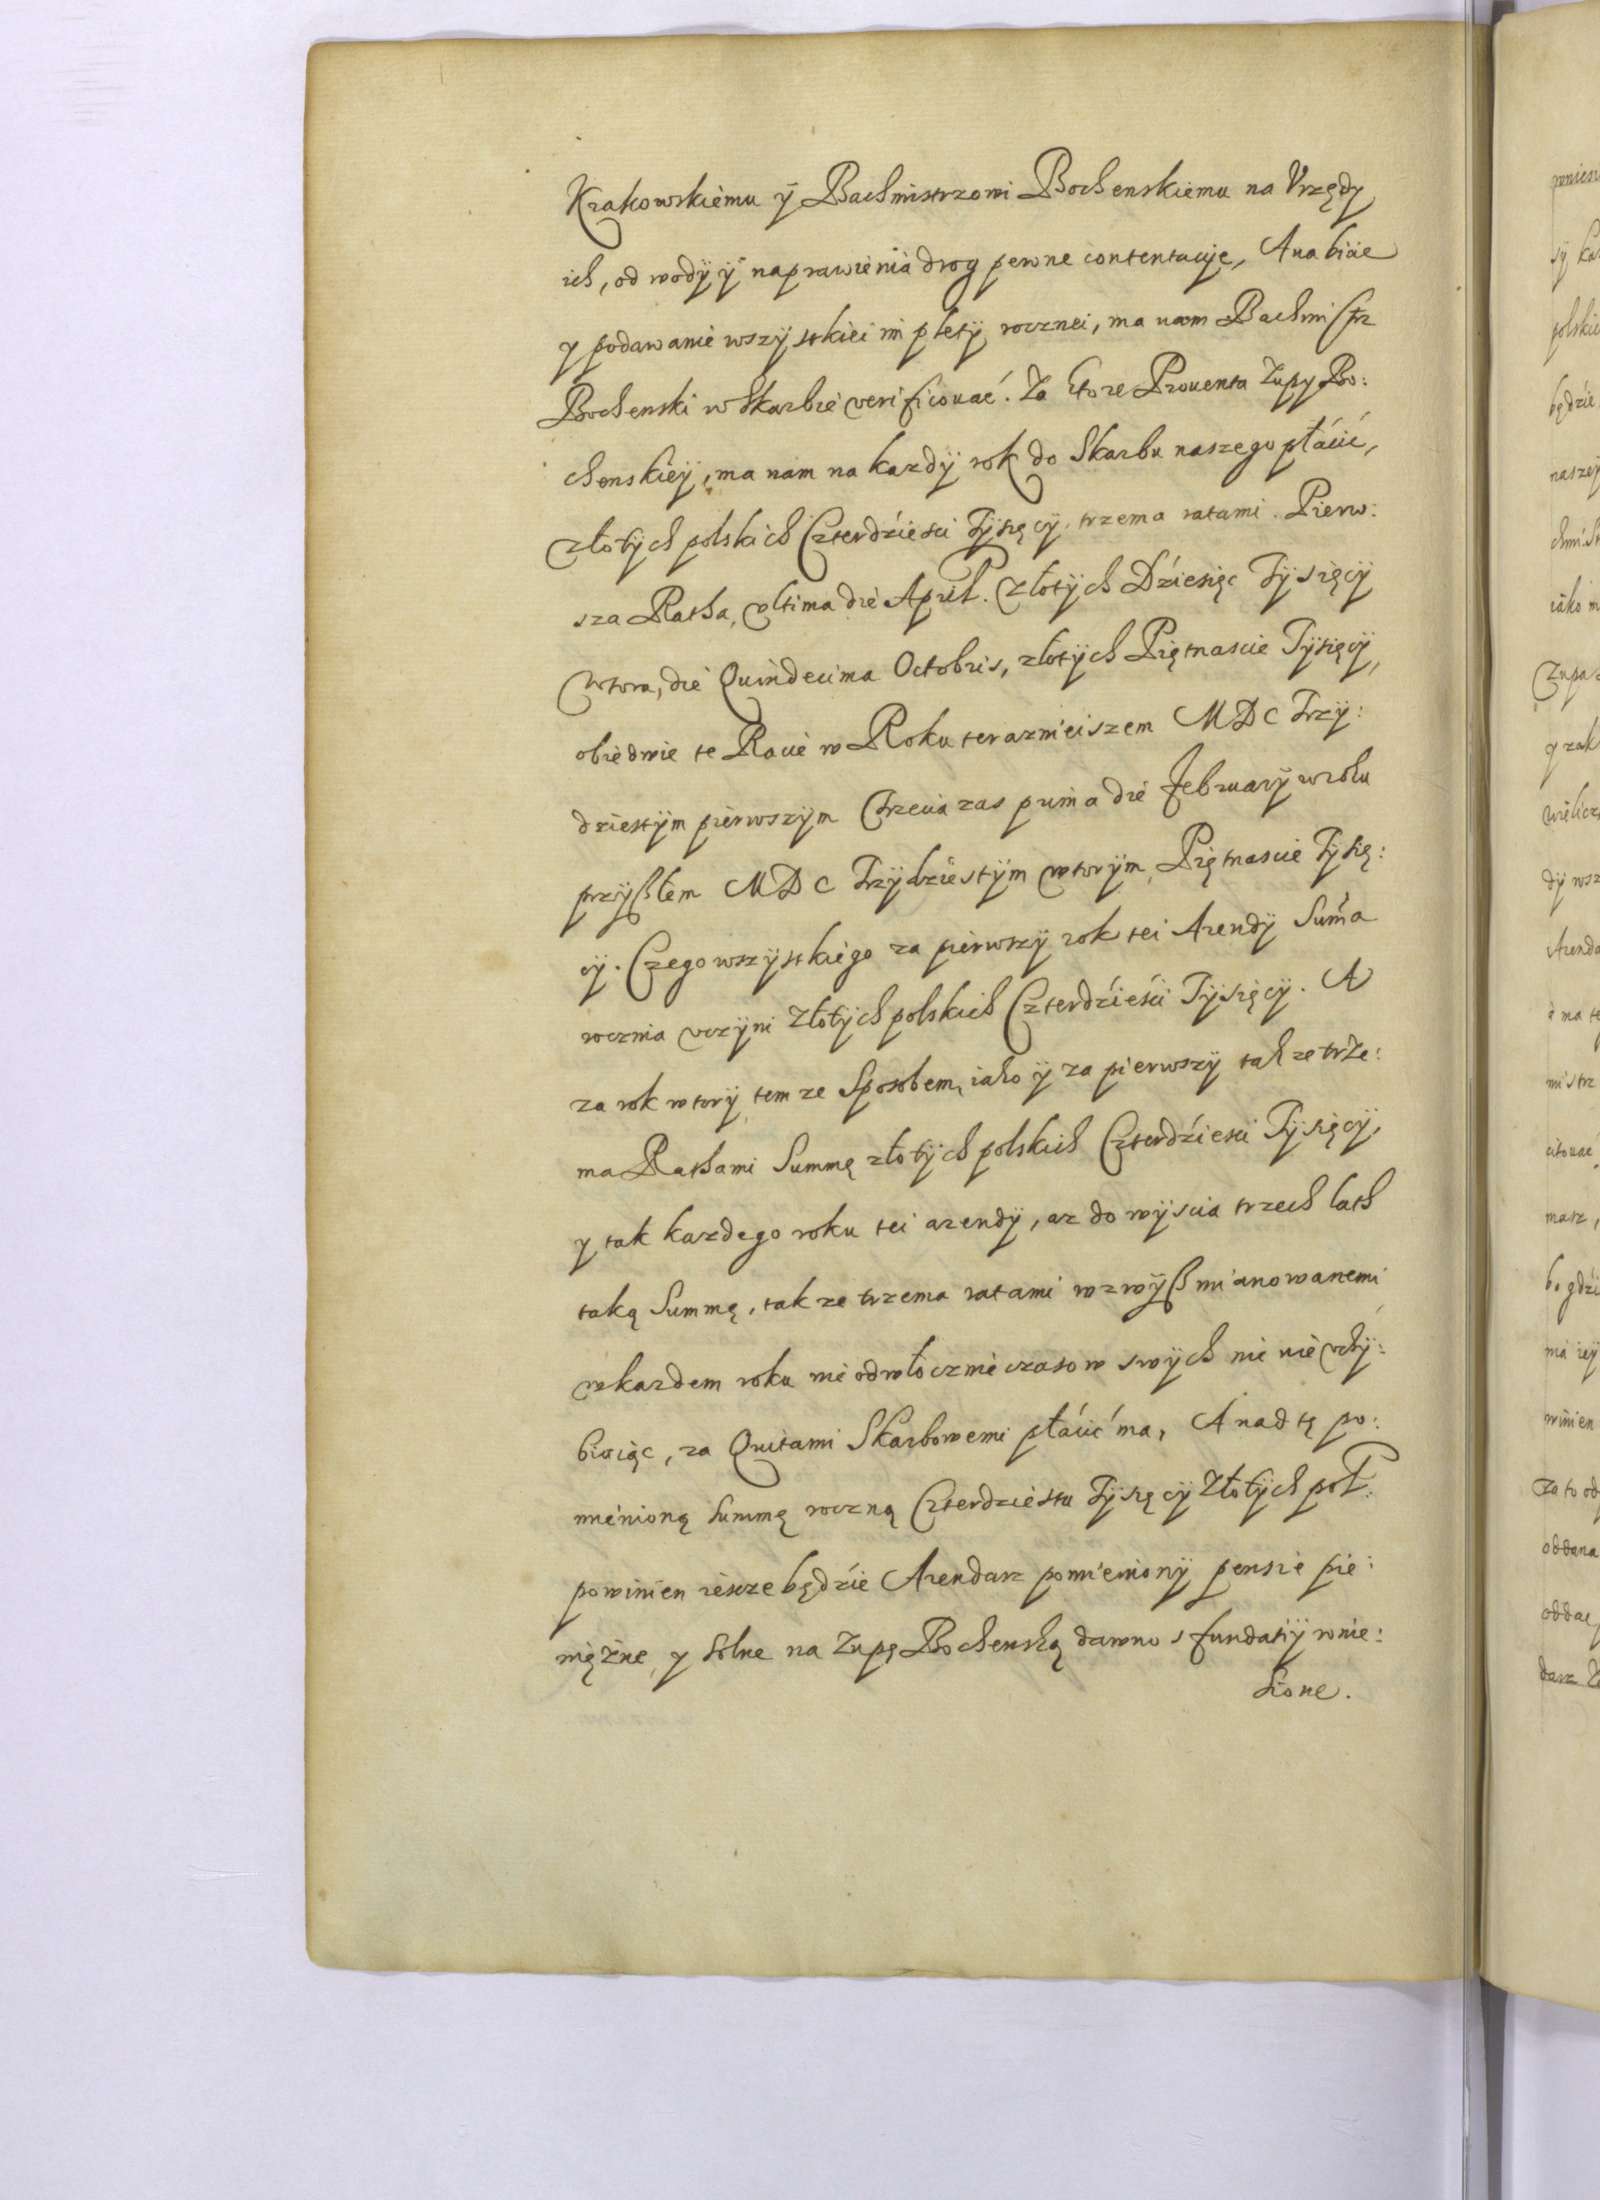 Krakowskiemu ÿ Bachmistrzowi Bochenskiemu na Vrzędy
ich, od wodÿ ÿ naprawienia drog pewne contentacije, A na
y podawanie wszÿstkiei rocznei, ma nam Bachmistrz
Bochenski w Skarbie verificouać. Za ktore Prouenta Zupy Bo:
chenskieÿ, ma nam na kazdÿ rok do Skarbu naszego płácić,
złotÿch polskich Czterdźiesci Tÿsięcÿ, trzema ratami. Pierw:
sza Ratha, vltima die April. Złotÿch Dźiesięc Tÿsięcÿ
Wtora, die Quindecima Octobris, złotÿch Piętnascie Tÿsięcÿ,
obiedwie te Racie w Roku teraznieiszem MDC Trzÿ:
dziestÿm pierwszÿm Trzecia zas prima die Februarÿ w roku
przÿßłem MDC Trzÿdziestÿm wtorÿm, Piętnascie Tÿsię:
cÿ. Czego wszÿstkiego za pierwszÿ rok tei Arendÿ Sum̃a
roczna vczÿni Złotÿch polskich Czterdźieśći Tÿsięcÿ. A
za rok wtorÿ tem ze Sposobem, iako ÿ za pierwszÿ takze trze:
ma Rathami Summę złotÿch polskich Czterdźiesci Tÿsięcÿ,
y tak kazdego roku tei arendÿ, az do wÿscia trzech lath
taką Summę, takze trzema ratami wzwÿß mianowanemi
w kazdem roku nieodwłocznie czasow swÿch nic nie vchÿ:
biaiąc, za Quitami Skarbowemi płácić ma, A nad tę po:
mienioną Summę roczną Czterdziestu Tÿsięcÿ Złotÿch pol:
powinien iescze będźie Arendarz pomienionÿ pensie pie:
niężne, y solne na Zupę Bochenską dawno s fundatiÿ wnie:
sione.